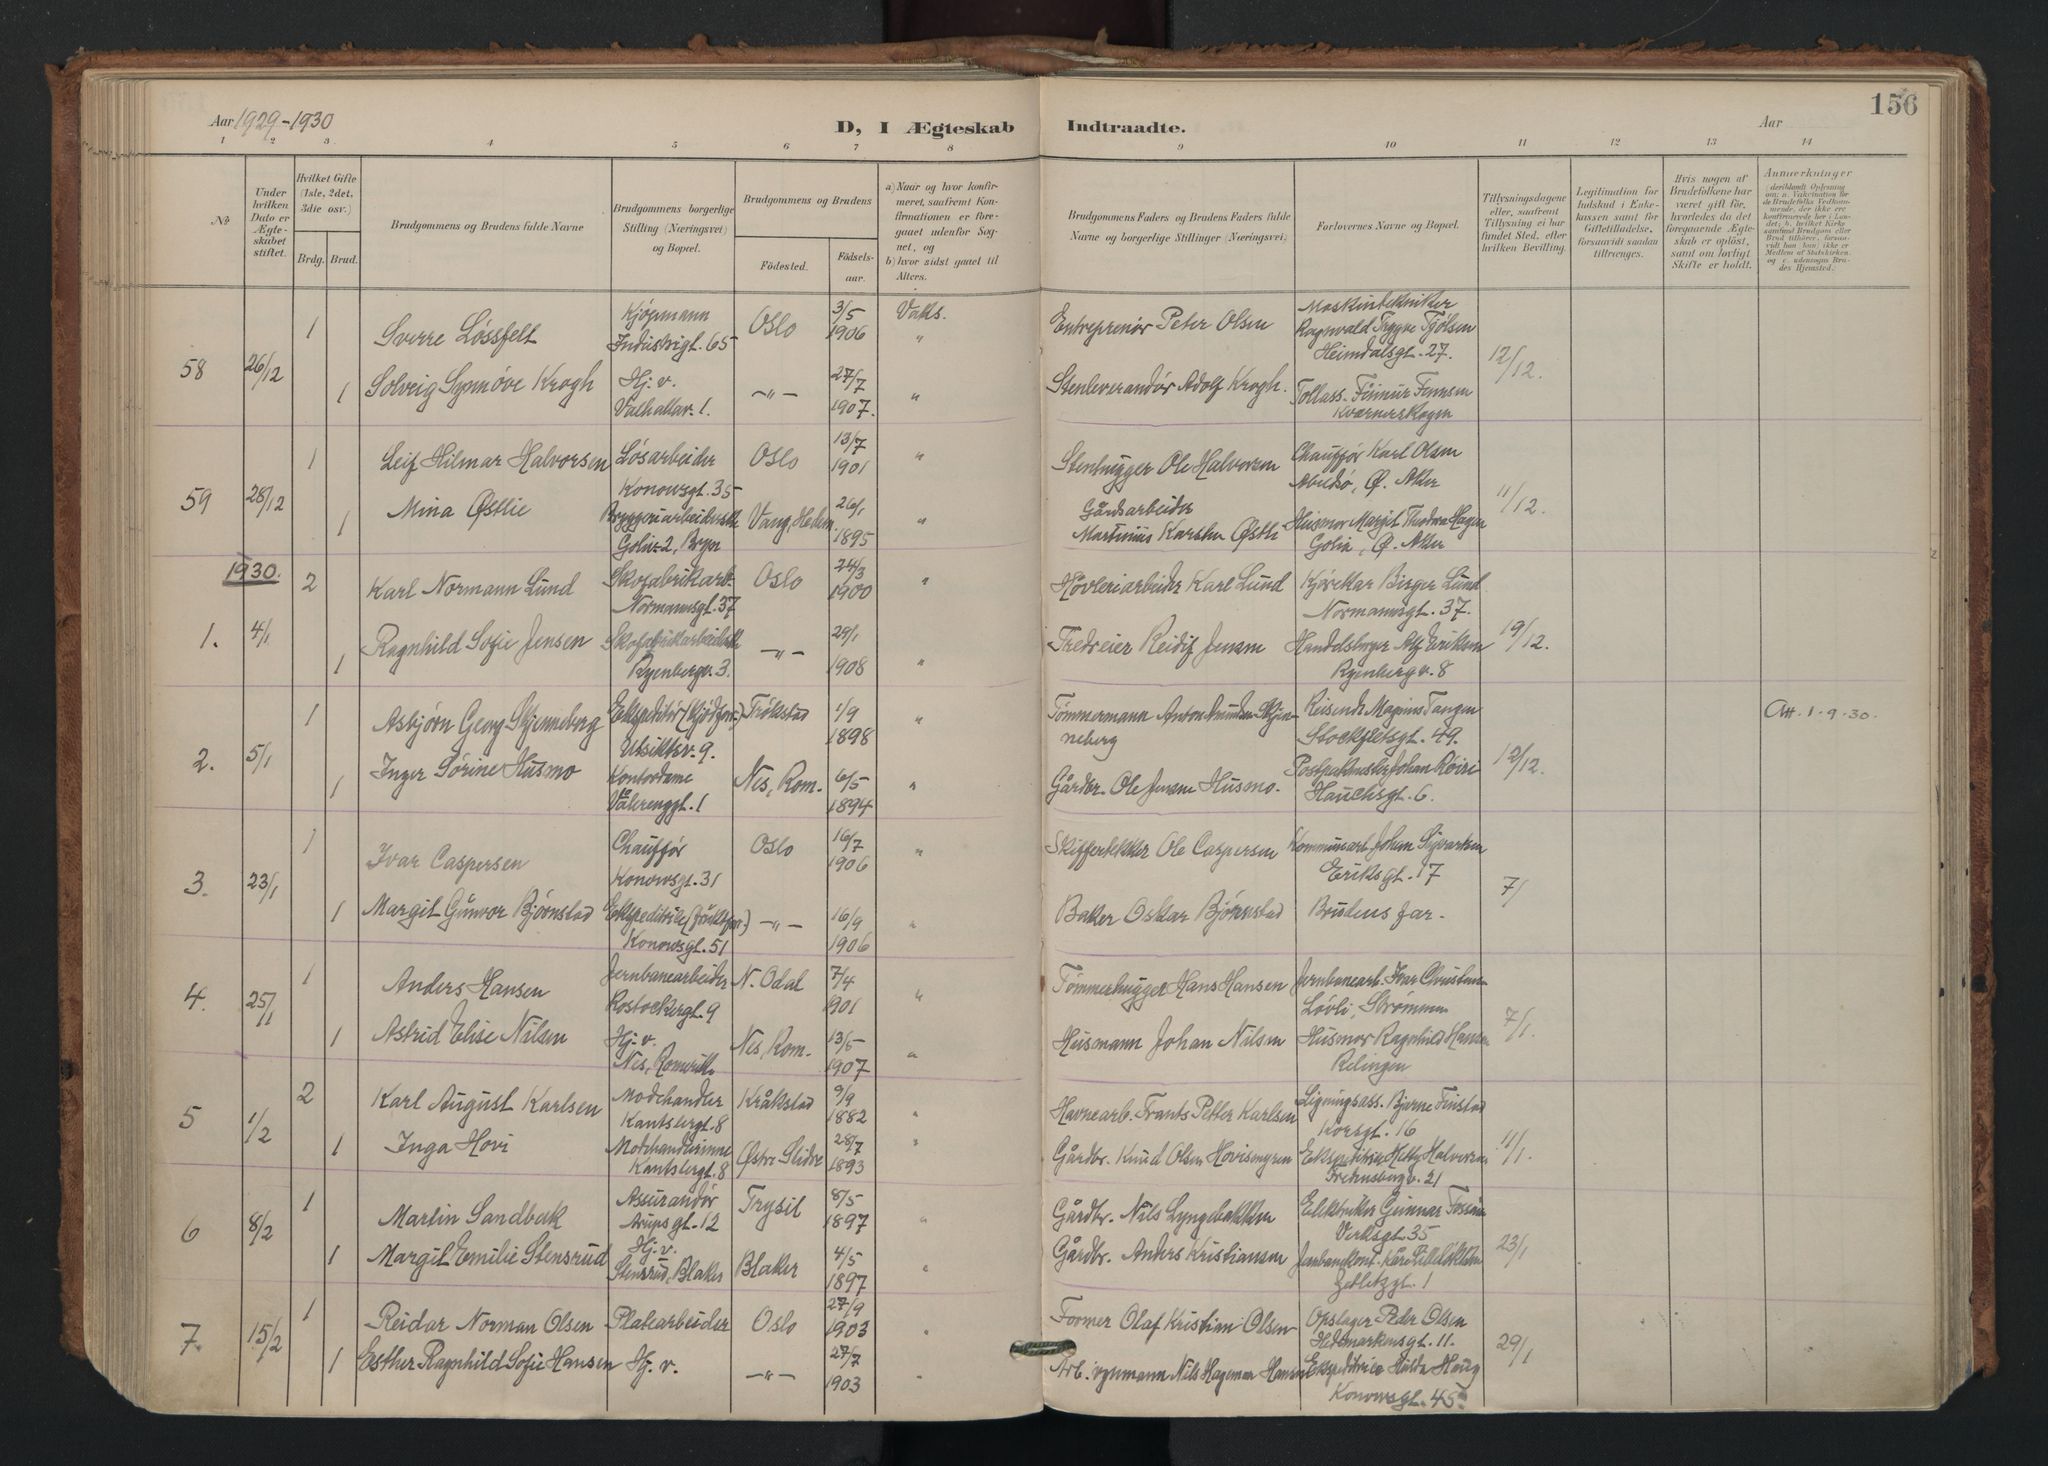 156
Aar 1929-1930
D, I Ægteskab Indtraadte.
Aar
1 2 3 4 5 6 7 8 9 10 11 12 13 14
No
Under hvilken Dato er Ægteskabet stiftet.
Hvilket Gifte (1ste, 2det, 3die osv.)
Brdg. Brud.
Brudgommens og Brudens fulde Navne
Brudgommens borgerlige Stilling (Næringsvei) og Bopæl.
Brudgommens og Brudens
Fødested. Fødselsaar.
a) Naar og hvor konfirmeret, saafremt Konfirmationen er foregaaet udenfor Sognet, og
b) hvor sidst gaaet til Alters.
Brudgommens Faders og Brudens Faders fulde Navne og borgerlige Stillinger (Næringsvei).
Forlovernes Navne og Bopæl.
Tillysningsdagene eller, saafremt Tillysning ei har fundet Sted, efter hvilken Bevilling.
Legitimation for Indskud i Enkekassen samt for Giftetilladelse, forsaavidt saadan tiltrænges.
Hvis nogen af Brudefolkene har været gift før, hvorledes da det foregaaende Ægteskab er opløst, samt om lovligt Skifte er holdt.
Anmerkninger
58 26/12
1 Sverre Løssfelt Kjøpmann Industrigt. 65 Oslo 3/5 1906 Vaks.
Entreprenør Peter Olsen
Maskintekniker Ragnvald Trygve Tjølsen Heimdalsgt. 27.
12/12.
1 Solveig Synnøve Krogh Hj. v. Valhallav. 1. -"- 27/7 1907. "
Stenleverandør Adolf Krogh.
Tollass. Finnur Finnsen Kværnerskogen
59 28/12
1 Leif Hilmar Halvorsen Løsarbeider Konowsgt. 35 Oslo 13/7 1901 "
Stenhugger Ole Halvorsen
Chauffør Karl Olsen Abildsø, Ø. Aker
11/12.
1 Mina Østlie Bryggeriarbeiderske Golia 2, Bryn Vang, Hedm. 26/1 1895 "
Gårdsarbeider Martinius Karsten Østli
Husmor Margit Theodora Hagen Golia, Ø. Aker
1930.
1. 4/1
2 Karl Normann Lund Skofabrikarb. Normannsgt. 37 Oslo 24/3 1900 "
Høvleriarbeider Karl Lund
Kjørekar Birger Lund Normannsgt. 37.
19/12.
1 Ragnhild Sofie Jensen Skofabrikarbeiderske Ryenbergv. 3. -"- 29/1 1908 "
Tredreier Reidif Jensen
Handelsborger Alf Eriksen Ryenbergv. 8
2. 5/1
1 Asbjørn Georg Skjenneberg Ekspeditør (Kjødforr.) Utsiktsv. 9. Trøkstad 1/9 1898 "
Tømmermann Anton Amundsen Skjenneberg
Reisende Magnus Tangen Stockfletsgt. 49.
12/12.
Att. 1-9-30.
1 Inger Sørine Husmo Kontordame Vålerenggt. 1 Nes, Rom. 6/5 1894 "
Gårdbr. Ole Jensen Husmo.
Postpakmester Johan Røiri Hauchsgt. 6.
3. 23/1
1 Ivar Caspersen Chauffør Konowsgt. 31 Oslo 16/7 1906 "
Skiffertekker Ole Caspersen
Kommunearb. Johan Sigvartsen Eriksgt. 17
7/1
1 Margit Gunvor Bjørnstad Ekspeditrise (fruktforr.) Konowsgt. 51 -"- 16/9 1906 "
Baker Oskar Bjørnstad
Brudens far.
4. 25/1
1 Anders Hansen Jernbanearbeider Rostockergt. 9 N. Odal 7/4 1901 "
Tømmerhugger Hans Hansen
Jernbanearb. Ivar Christensen Løvli, Strømmen
7/1.
1 Astrid Elise Nilsen Hj. v. Nes, Romerike Nes, Rom. 13/5 1907 "
Husmann Johan Nilsen
Husmor Ragnhild Hansen Relingen
5 1/2
2 Karl August Karlsen Motehandler Kantslergt. 8 Kråkstad 9/9 1882 "
Havnearb. Frants Petter Karlsen
Ligningsass. Bjarne Finstad Korsgt. 16
11/1.
1 Inga Hovi Motehandlerinne Kantslergt. 8 Østre Slidre 28/7 1893 "
Gårdbr. Knud Olsen Hovismyren
Ekspeditrise Hetty Halvorsen Fredensborgv. 21
6 8/2
1 Martin Sandbak Assurandør Arupsgt. 12 Trysil 8/5 1897 "
Gårdbr. Nils Lyngebakken
Elektriker Gunnar Fossum Verksgt. 35
23/1
1 Margit Emilie Stensrud Hj. v. Stensrud, Blaker Blaker 4/5 1897 "
Gårdbr. Anders Kristiansen
Jernbanekont. Kåre Jebletzgt. 1
7. 15/2
1 Reidar Norman Olsen Platearbeider Oslo 27/9 1903 "
Former Olaf Kristian Olsen
Opslager Peder Olsen Hedemarkensgt. 11.
29/1
1 Esther Ragnhild Sofie Hansen Hj. v. -"- 27/7 1903 "
Nils Hageman Hansen
Ekspeditrise Hulda Haug Konowsgt. 45.